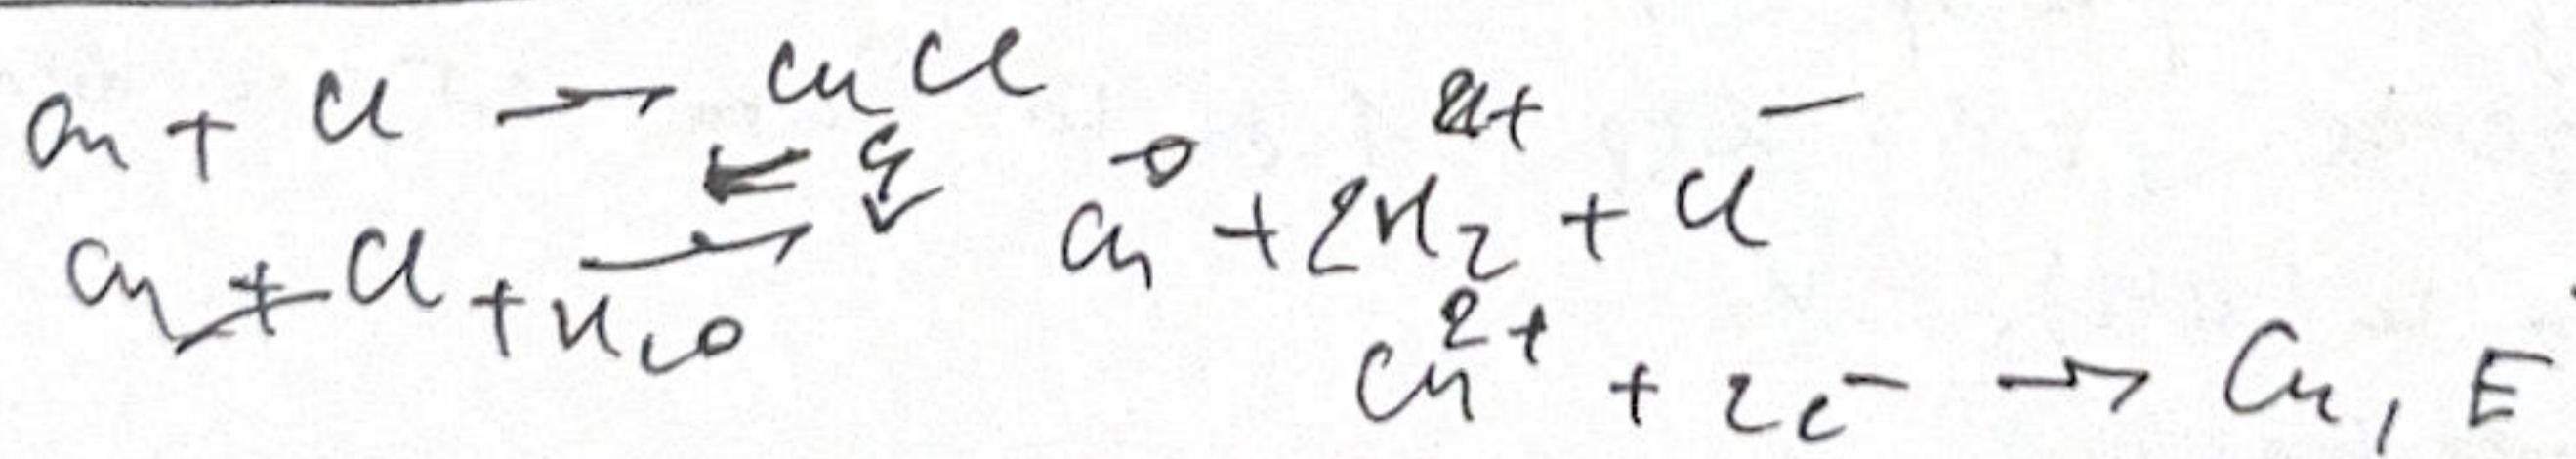 Cu + Cl → CuCl
Cu + Cl + H₂O ⇌ Cu⁰ + 2H₂ + Cl⁻
Cu²⁺ + 2e⁻ → Cu, E